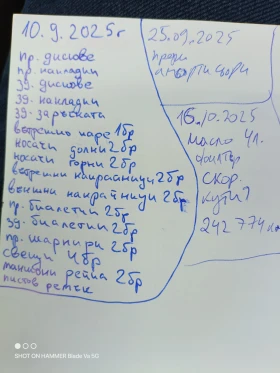 10.9.2025г
пр. дискове
пр. накладки
зд. дискове
зд. накладки
зд. зарѣската
вътрешно каре 1бр
носачи долни 2бр
носачи горни 2бр
вътрешни накрайници 2бр
външни накрайници 2бр
пр. биалетки 2бр
зд. биалетки 2бр
пр. шарнири 2бр
свещи 4бр
маншони рейка 2бр
пистов ремък
25.09.2025
предни
амортисьори
16.10.2025
масло 4л.
филтър
скор.
кутия
242 774
SHOT ON HAMMER Blade V5 5G